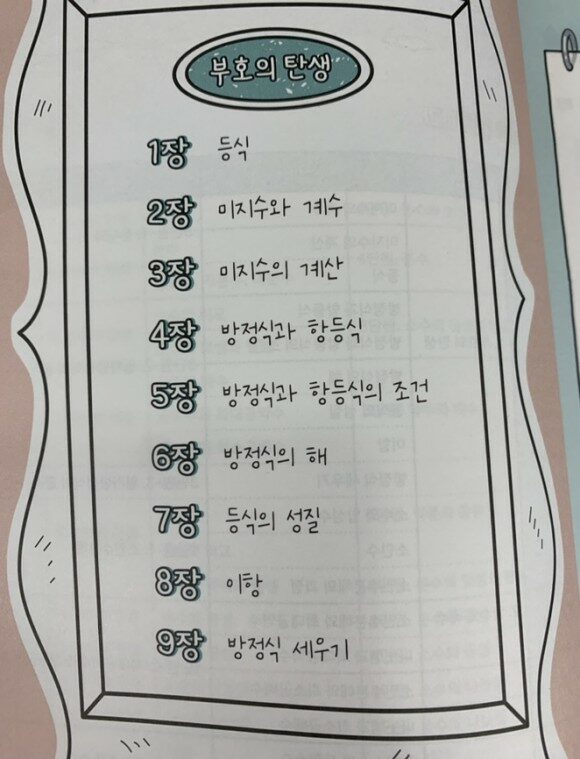 부호의 탄생
1장 등식
2장 미지수와 계수
3장 미지수의 계산
4장 방정식과 항등식
5장 방정식과 항등식의 조건
6장 방정식의 해
7장 등식의 성질
8장 이항
9장 방정식 세우기